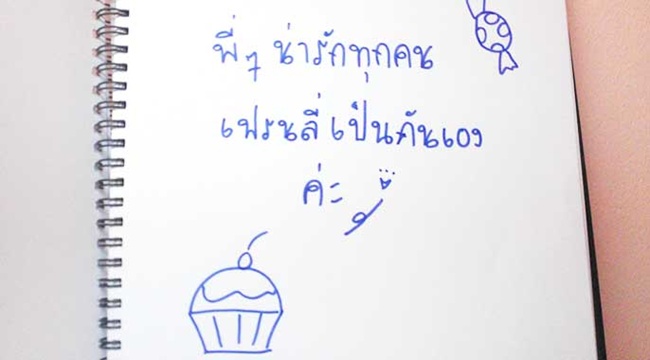 พี่ๆ น่ารักทุกคน
เฟรนลี่ เป็นกันเอง
ค่ะ